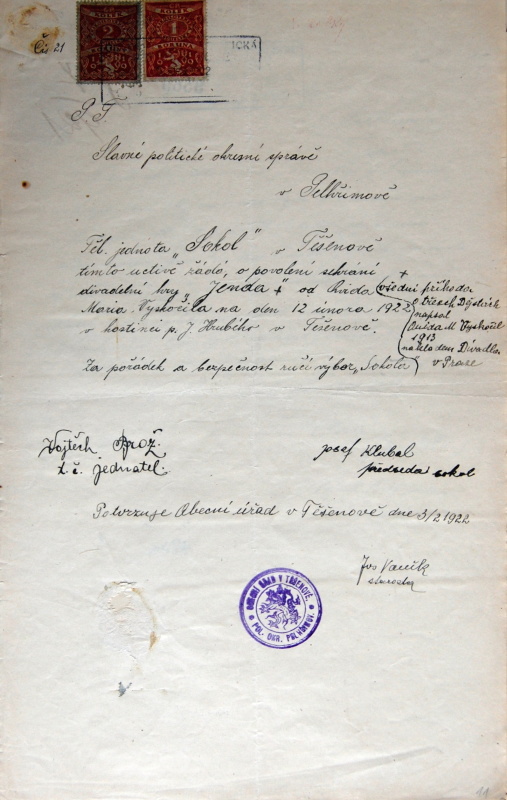 Čís 21
KOLEK
2
KORUNA
KOLEK
1
KORUNA
P. T.
Slavné politické okresní správě
v Pelhřimově
Těl. jednota „Sokol“ v Těšenově
tímto uctivě žádá, o povolení sehrání
divadelní hry „Jenda“ + od Quida
Maria Vyskočila na den 12 února 1922
v hostinci p. J. Hrubého v Těšenově.
+
všední příhoda
o třech
napsal
Quido M Vyskočil
1913
nákladem Divadla
v Praze
Za pořádek a bezpečnost ručí výbor „Sokola“
Vojtěch Brož
t. č. jednatel.
Josef Klubal
předseda sokol
Potvrzuje Obecní úřad v Těšenově dne 3/2 1922
Jos Vaněk
starosta
OBECNÍ ÚŘAD V TĚŠENOVĚ
POL. OKR. PELHŘIMOV.
11